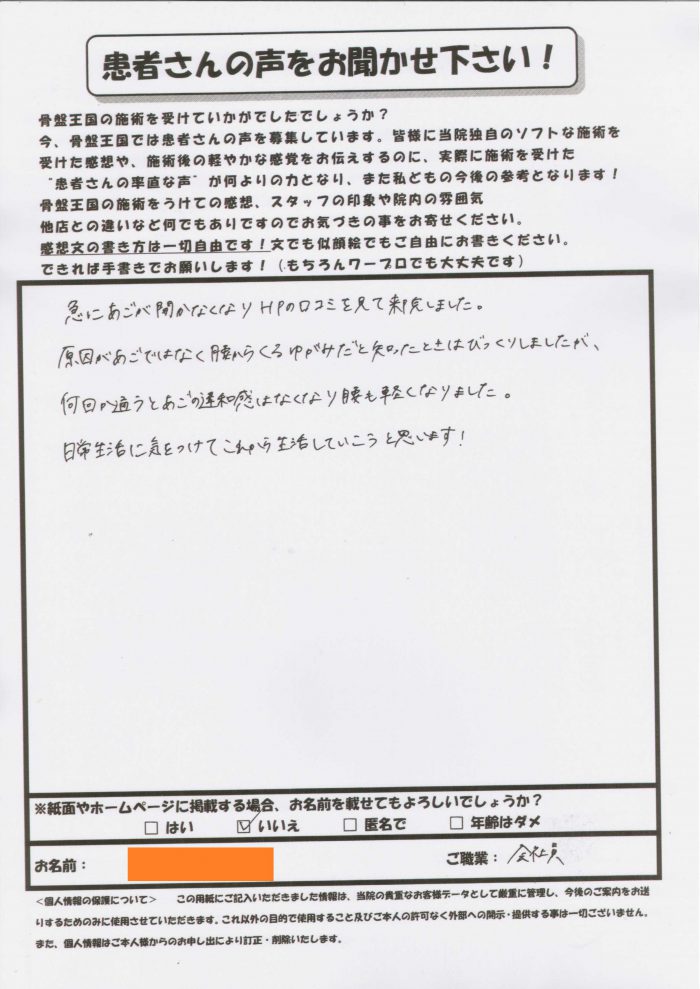 患者さんの声をお聞かせ下さい!
骨盤王国の施術を受けていかがでしたでしょうか?
今、骨盤王国では患者さんの声を募集しています。皆様に当院独自のソフトな施術を
受けた感想や、施術後の軽やかな感覚をお伝えするのに、実際に施術を受けた
"患者さんの率直な声"が何よりの力となり、また私どもの今後の参考となります!
骨盤王国の施術をうけての感想、スタッフの印象や院内の雰囲気
他店との違いなど何でもありですのでお気づきの事をお寄せください。
感想文の書き方は一切自由です!文でも似顔絵でもご自由にお書きください。
できれば手書きでお願いします!(もちろんワープロでも大丈夫です)
急にあごが開かなくなりHPの口コミを見て来院しました。
原因があごではなく腰からくるゆがみだと知ったときはびっくりしましたが、
何回か通うとあごの違和感はなくなり腰も軽くなりました。
日常生活に気をつけてこれから生活していこうと思います!
※紙面やホームページに掲載する場合、お名前を載せてもよろしいでしょうか?
□ はい ☑ いいえ □ 匿名で □ 年齢はダメ
お名前: ご職業: 会社員
<個人情報の保護について> この用紙にご記入いただきました情報は、当院の貴重なお客様データとして厳重に管理し、今後のご案内をお送
りするためのみに使用させていただきます。これ以外の目的で使用すること及びご本人の許可なく外部への開示・提供する事は一切ございません。
また、個人情報はご本人様からのお申し出により訂正・削除いたします。